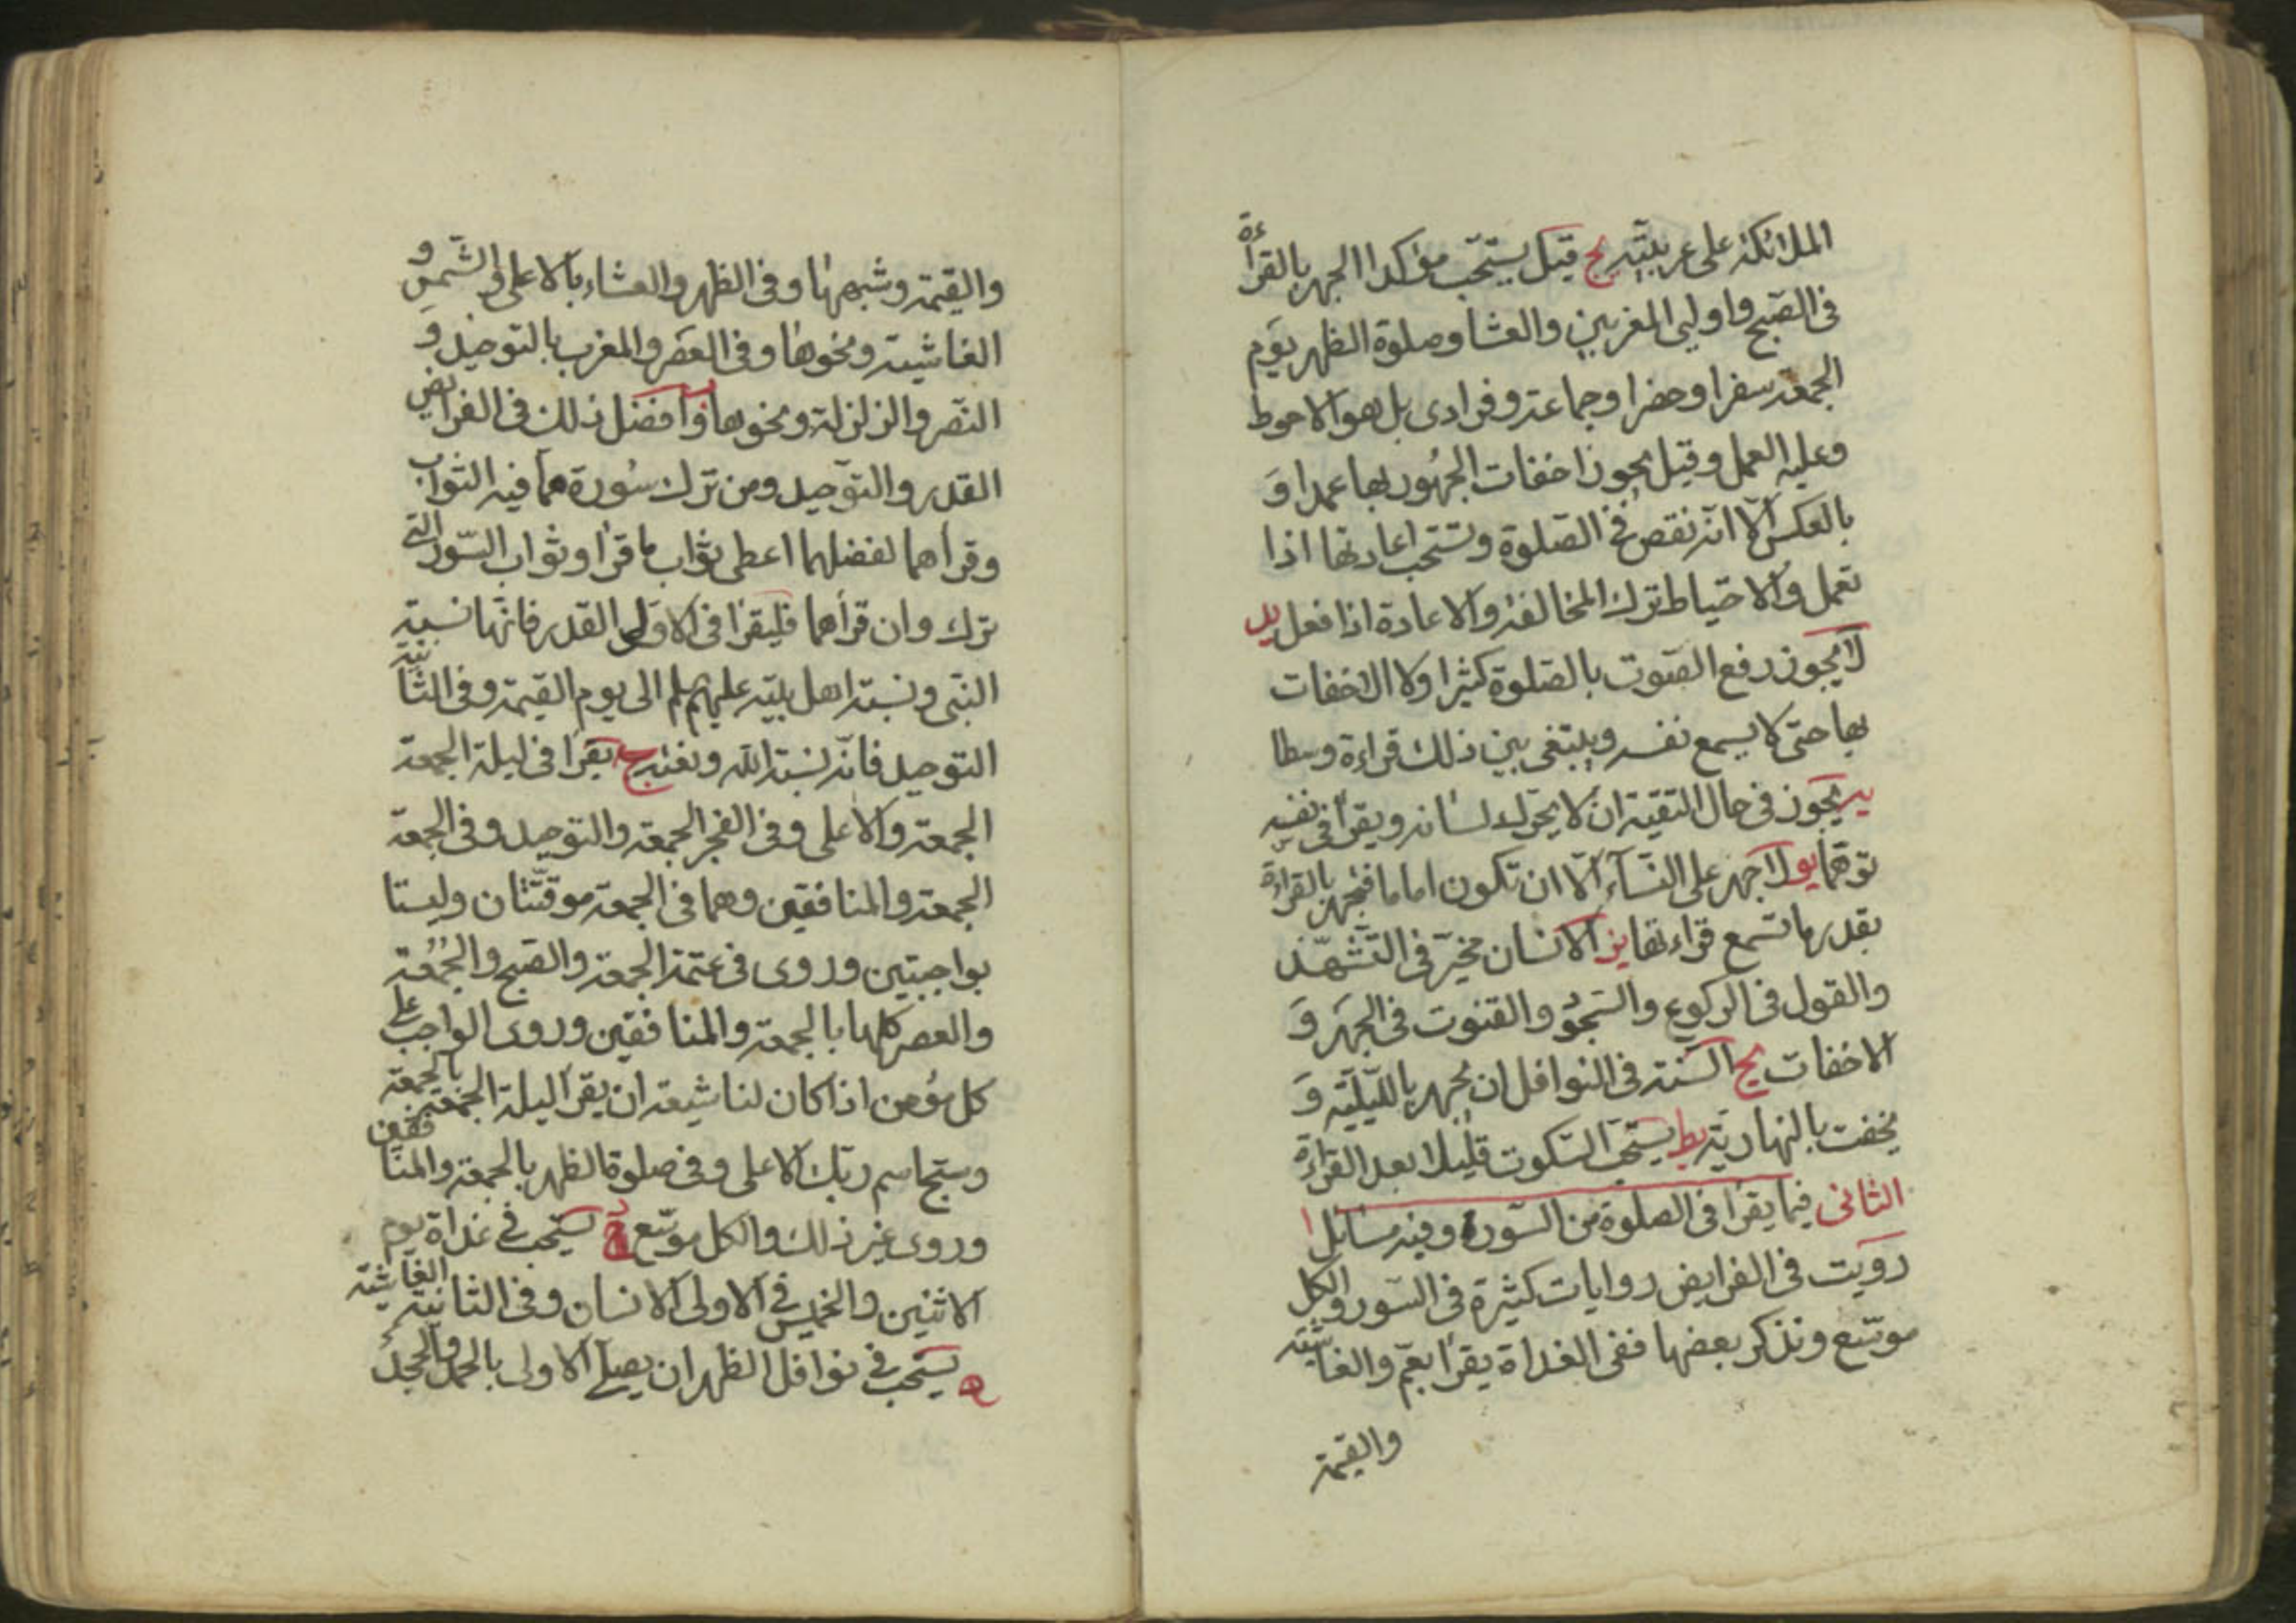 الملائكة على عربيته يج قيل يستحب مؤكدا الجهر بالقراءة
فى الصبح واوليى المغربين والعشا وصلوة الظهر يوم
الجمعة سفرا وحضرا وجماعة وفرادى بل هو الاحوط
وعليه العمل وقيل يجوز اخفات الجهور بها عمدا و
بالعكس الا انه نقص فى الصلوة وتستحب اعادتها اذا
تعمل والاحتياط ترك المخالفة والاعادة اذا فعل يد
لا يجوز رفع الصوت بالصلوة كثيرا ولا الاخفات
بها حتى لا يسمع نفسه ويبتغى بين ذلك قراءة وسطا
يه يجوز فى حال التقية ان لا يحرك لسانه ويقرأ فى نفسه
توهما يو لا جهر على النسآء الا ان تكون اماما فتجهر بالقراءة
بقدر ما تسمع قراءتها يز الانسان مخير فى التشهد
والقول فى الركوع والسجود والقنوت فى الجهر و
الاخفات يح السنة فى النوافل ان يجهر بالليلية و
يخفت بالنهارية يط يستحب السكوت قليلا بعد القراءة
الثانى فيما يقرأ فى الصلوة من السورة وفيه مسائل ا
رويت فى الفرايض روايات كثيرة فى السور والكل
موسع ونذكر بعضها ففى الغداة يقرأ بعم والغاشية
والقيمة
والقيمة وشبهها وفى الظهر والعشاء بالاعلى والشمس و
الغاشية ونحوها وفى العصر والمغرب بالتوحيد و
النصر والزلزلة ونحوها ب وافضل ذلك فى الفرائض
القدر والتوحيد ومن ترك سورة مما فيه الثواب
وقرأهما لفضلهما اعطى ثواب ما قرأ وثواب السور التى
ترك وان قرأهما فليقرأ فى الاولى القدر فانها نسبة
النبى ونسبة اهل بيته عليهم سلم الى يوم القيمة وفى الثانية
التوحيد فانه نسبة الله ونعته ج يقرأ فى ليلة الجمعة
الجمعة والاعلى وفى الفجر الجمعة والتوحيد وفى الجمعة
الجمعة والمنافقين وهما فى الجمعة موقتتان وليستا
بواجبتين وروى فى عتمة الجمعة والصبح والجمعة
والعصر كلها بالجمعة والمنافقين وروى الواجب على
كل مؤمن اذا كان لنا شيعة ان يقرأ ليلة الجمعة بالجمعة
وسبح اسم ربك الاعلى وفى صلوة الظهر بالجمعة والمنافقين
وروى غير ذلك والكل موسع د يستحب فى غداة يوم
الاثنين والخميس فى الاولى الانسان وفى الثانية الغاشية
ه يستحب فى نوافل الظهر ان يصلى الاولى بالحمد والجحد